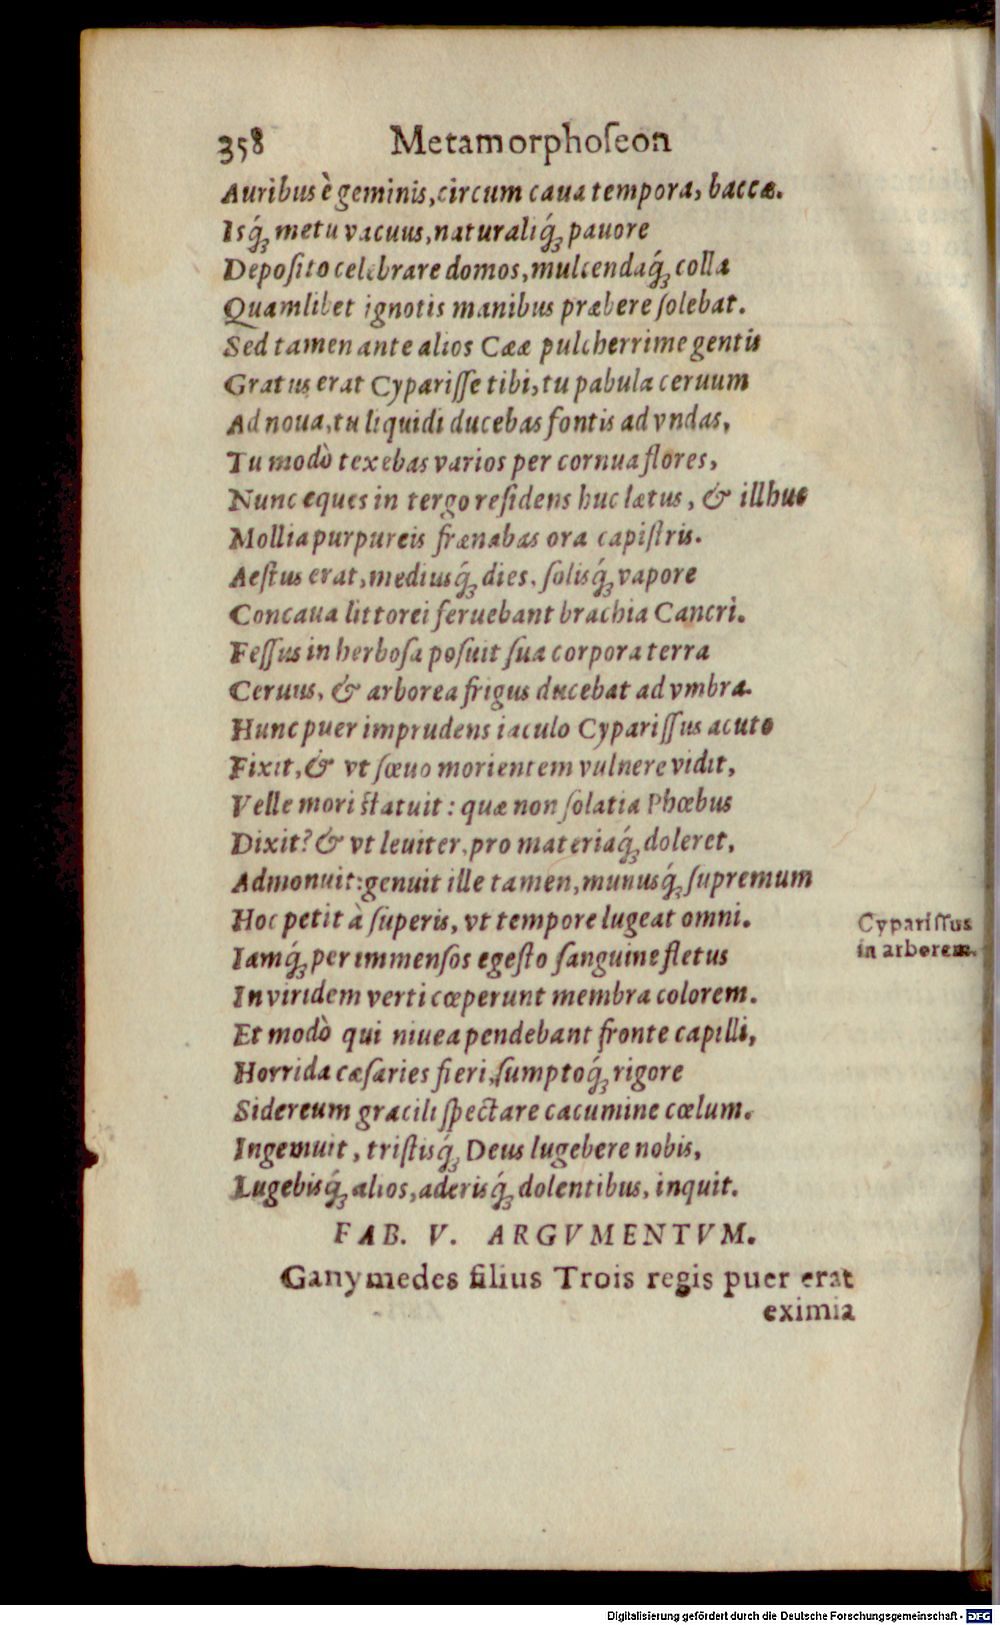 358 Metamorphoſeon
Auribus è geminis, circum caua tempora, baccæ.
Isq́; metu vacuus, naturaliq́; pauore
Depoſito celebrare domos, mulcendaq́; colla
Quamlibet ignotis manibus præbere ſolebat.
Sed tamen ante alios Cææ pulcherrime gentis
Gratus erat Cypariſſe tibi, tu pabula ceruum
Ad noua, tu liquidi ducebas fontis ad vndas,
Tu modò texebas varios per cornua flores,
Nunc eques in tergo reſidens huc lætus, & illhuc
Mollia purpureis frænabas ora capiſtris.
Aeſtus erat, mediusq́; dies, ſolisq́; vapore
Concaua littorei feruebant brachia Cancri.
Feſſus in herboſa poſuit ſua corpora terra
Ceruus, & arborea frigus ducebat ad vmbra.
Hunc puer imprudens iaculo Cypariſſus acuto
Fixit, & vt ſœuo morientem vulnere vidit,
Velle mori ſtatuit: quæ non ſolatia Phœbus
Dixit? & vt leuiter, pro materiaq́; doleret,
Admonuit: genuit ille tamen, munusq́; ſupremum
Hoc petit à ſuperis, vt tempore lugeat omni.
Cypariſſus
in arborem.
Iamq́; per immenſos egeſto ſanguine fletus
In viridem verti cœperunt membra colorem.
Et modò qui niuea pendebant fronte capilli,
Horrida cæſaries fieri, ſumptoq́; rigore
Sidereum gracili ſpectare cacumine cœlum.
Ingemuit, triſtisq́; Deus lugebere nobis,
Lugebisq́; alios, aderisq́; dolentibus, inquit.
FAB. V. ARGVMENTVM.
Ganymedes filius Trois regis puer erat
eximia
Digitalisierung gefördert durch die Deutsche Forschungsgemeinschaft - DFG